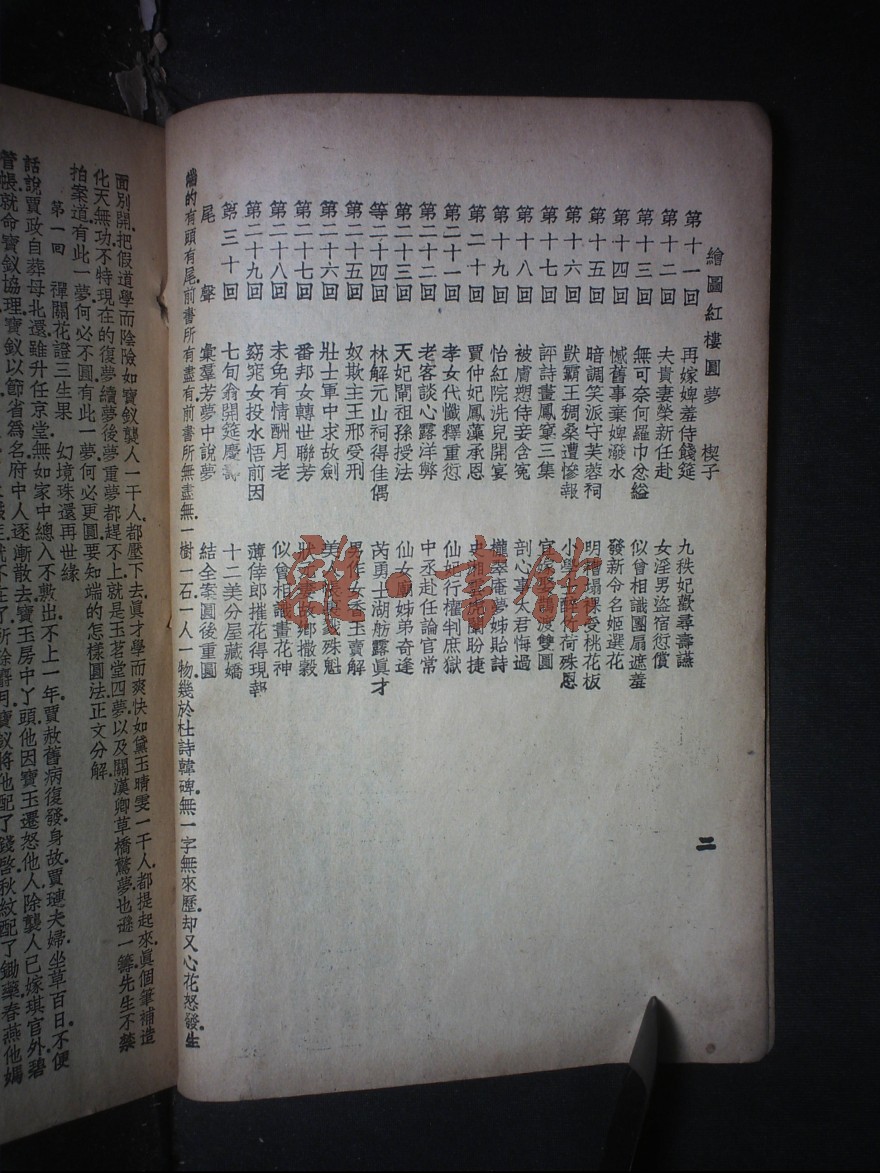 繪圖紅樓圓夢 楔子
二
第十一回 再嫁婢羞侍餞筵 九秩妃歡尋壽讌
第十二回 夫貴妻榮新任赴 女淫男盜宿愆償
第十三回 無可奈何羅巾忿縊 似曾相識團扇遮羞
第十四回 憾舊事棄婢潑水 發新令名姬選花
第十五回 暗調笑派守芙蓉祠 明糟塌裸受桃花板
第十六回 獃霸王稠桑遭慘報 小學士醉竹荷殊恩
第十七回 評詩畫鳳窠三集 雙圓
第十八回 被膚愬侍妾含冤 剖心事太君悔過
第十九回 怡紅院洗兒開宴 櫳翠庵夢姊貽詩
第二十回 賈仲妃鳳藻承恩 史湘 蘭盼捷
第二十一回 孝女代懺釋重愆 仙妃行權判庶獄
第二十二回 老客談心露洋弊 中丞赴任論官常
第二十三回 天妃閘祖孫授法 仙女廟姊弟奇逢
等二十四回 林解元山祠得佳偶 芮勇士湖舫露眞才
第二十五回 奴欺主王邢受刑 男作女秀玉賣解
第二十六回 壯士軍中求故劍 美 殊魁
第二十七回 番邦女轉世聯芳 狀元妻故鄉撒穀
第二十八回 未免有情酬月老 似曾相識畫花神
第二十九回 窈窕女投水悟前因 薄倖郎摧花得現報
第三十回 七旬翁開筵慶壽 十二美分屋藏嬌
尾聲 彙羣芳夢中說夢 結全案圓後重圓
的有頭有尾前書所有盡有前書所無盡無一樹一石一人一物幾於杜詩韓碑無一字無來歷却又心花怒發生
面別開把假道學而陰險如寶釵襲人一干人都壓下去眞才學而爽快如黛玉晴雯一干人都提起來眞個筆補造
化天無功不特現在的復夢續夢後夢重夢都趕不上就是玉茗堂四夢以及關漢卿草橋驚夢也遜一籌先生不禁
拍案道有此一夢何必不圓有此一夢何必更圓要知端的怎樣圓法正文分解
第一回 禪關花證三生果 幻境珠還再世緣
話說賈政自葬母北還雖升任京堂無如家中總入不敷出不上一年賈赦舊病復發身故賈璉夫婦坐草百日不便
管帳就命寶釵協理寶釵以節省爲名府中人逐漸散去寶玉房中丫頭他因寶玉遷怒他人除襲人已嫁琪官外碧
寶釵將他配了錢啓秋紋配了鋤藥春燕他媽